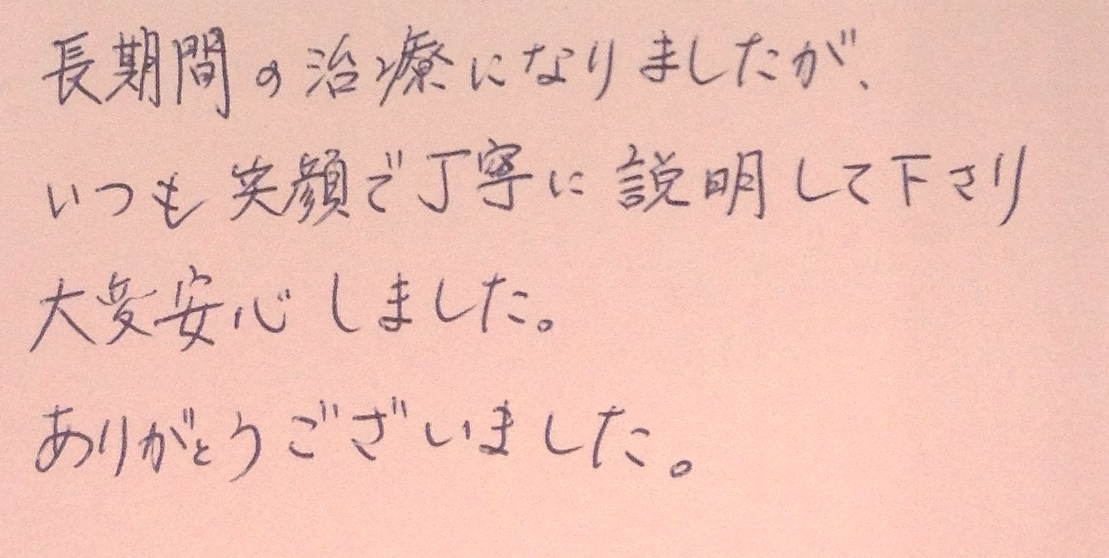 長期間の治療になりましたが、
いつも笑顔で丁寧に説明して下さり
大変安心しました。
ありがとうございました。